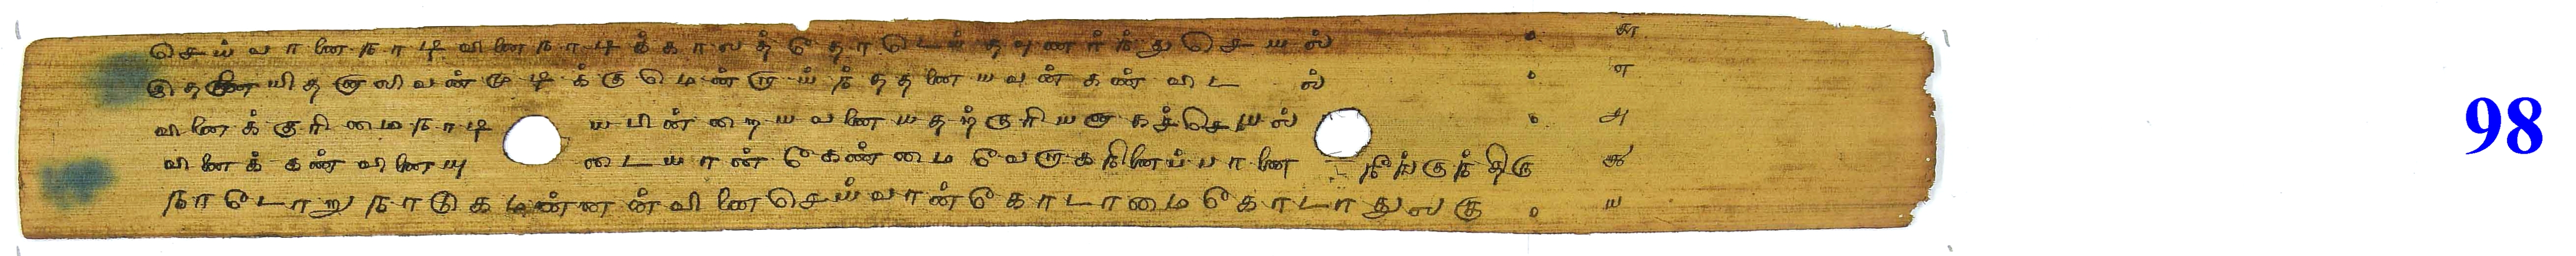 செய்வானைநாடிவினைநாடிக்காலத்தோடெய்தவுணர்ந்துசெயல் ௬
இதனையிதனாலிவன்முடிக்குமென்றாய்ந்ததனையவன்கண்விடல் ௭
வினைக்குரிமைநாடியபின்றையவனையதற்குரியனாகச்செயல் ௮
வினைக்கண்வினையுடையான்கேண்மைவேறாகநினைப்பானைநீங்குந்திரு ௯
நாடோறுநாடுகமன்னன்வினைசெய்வான்கோடாமைகோடாதுலகு ௰
98